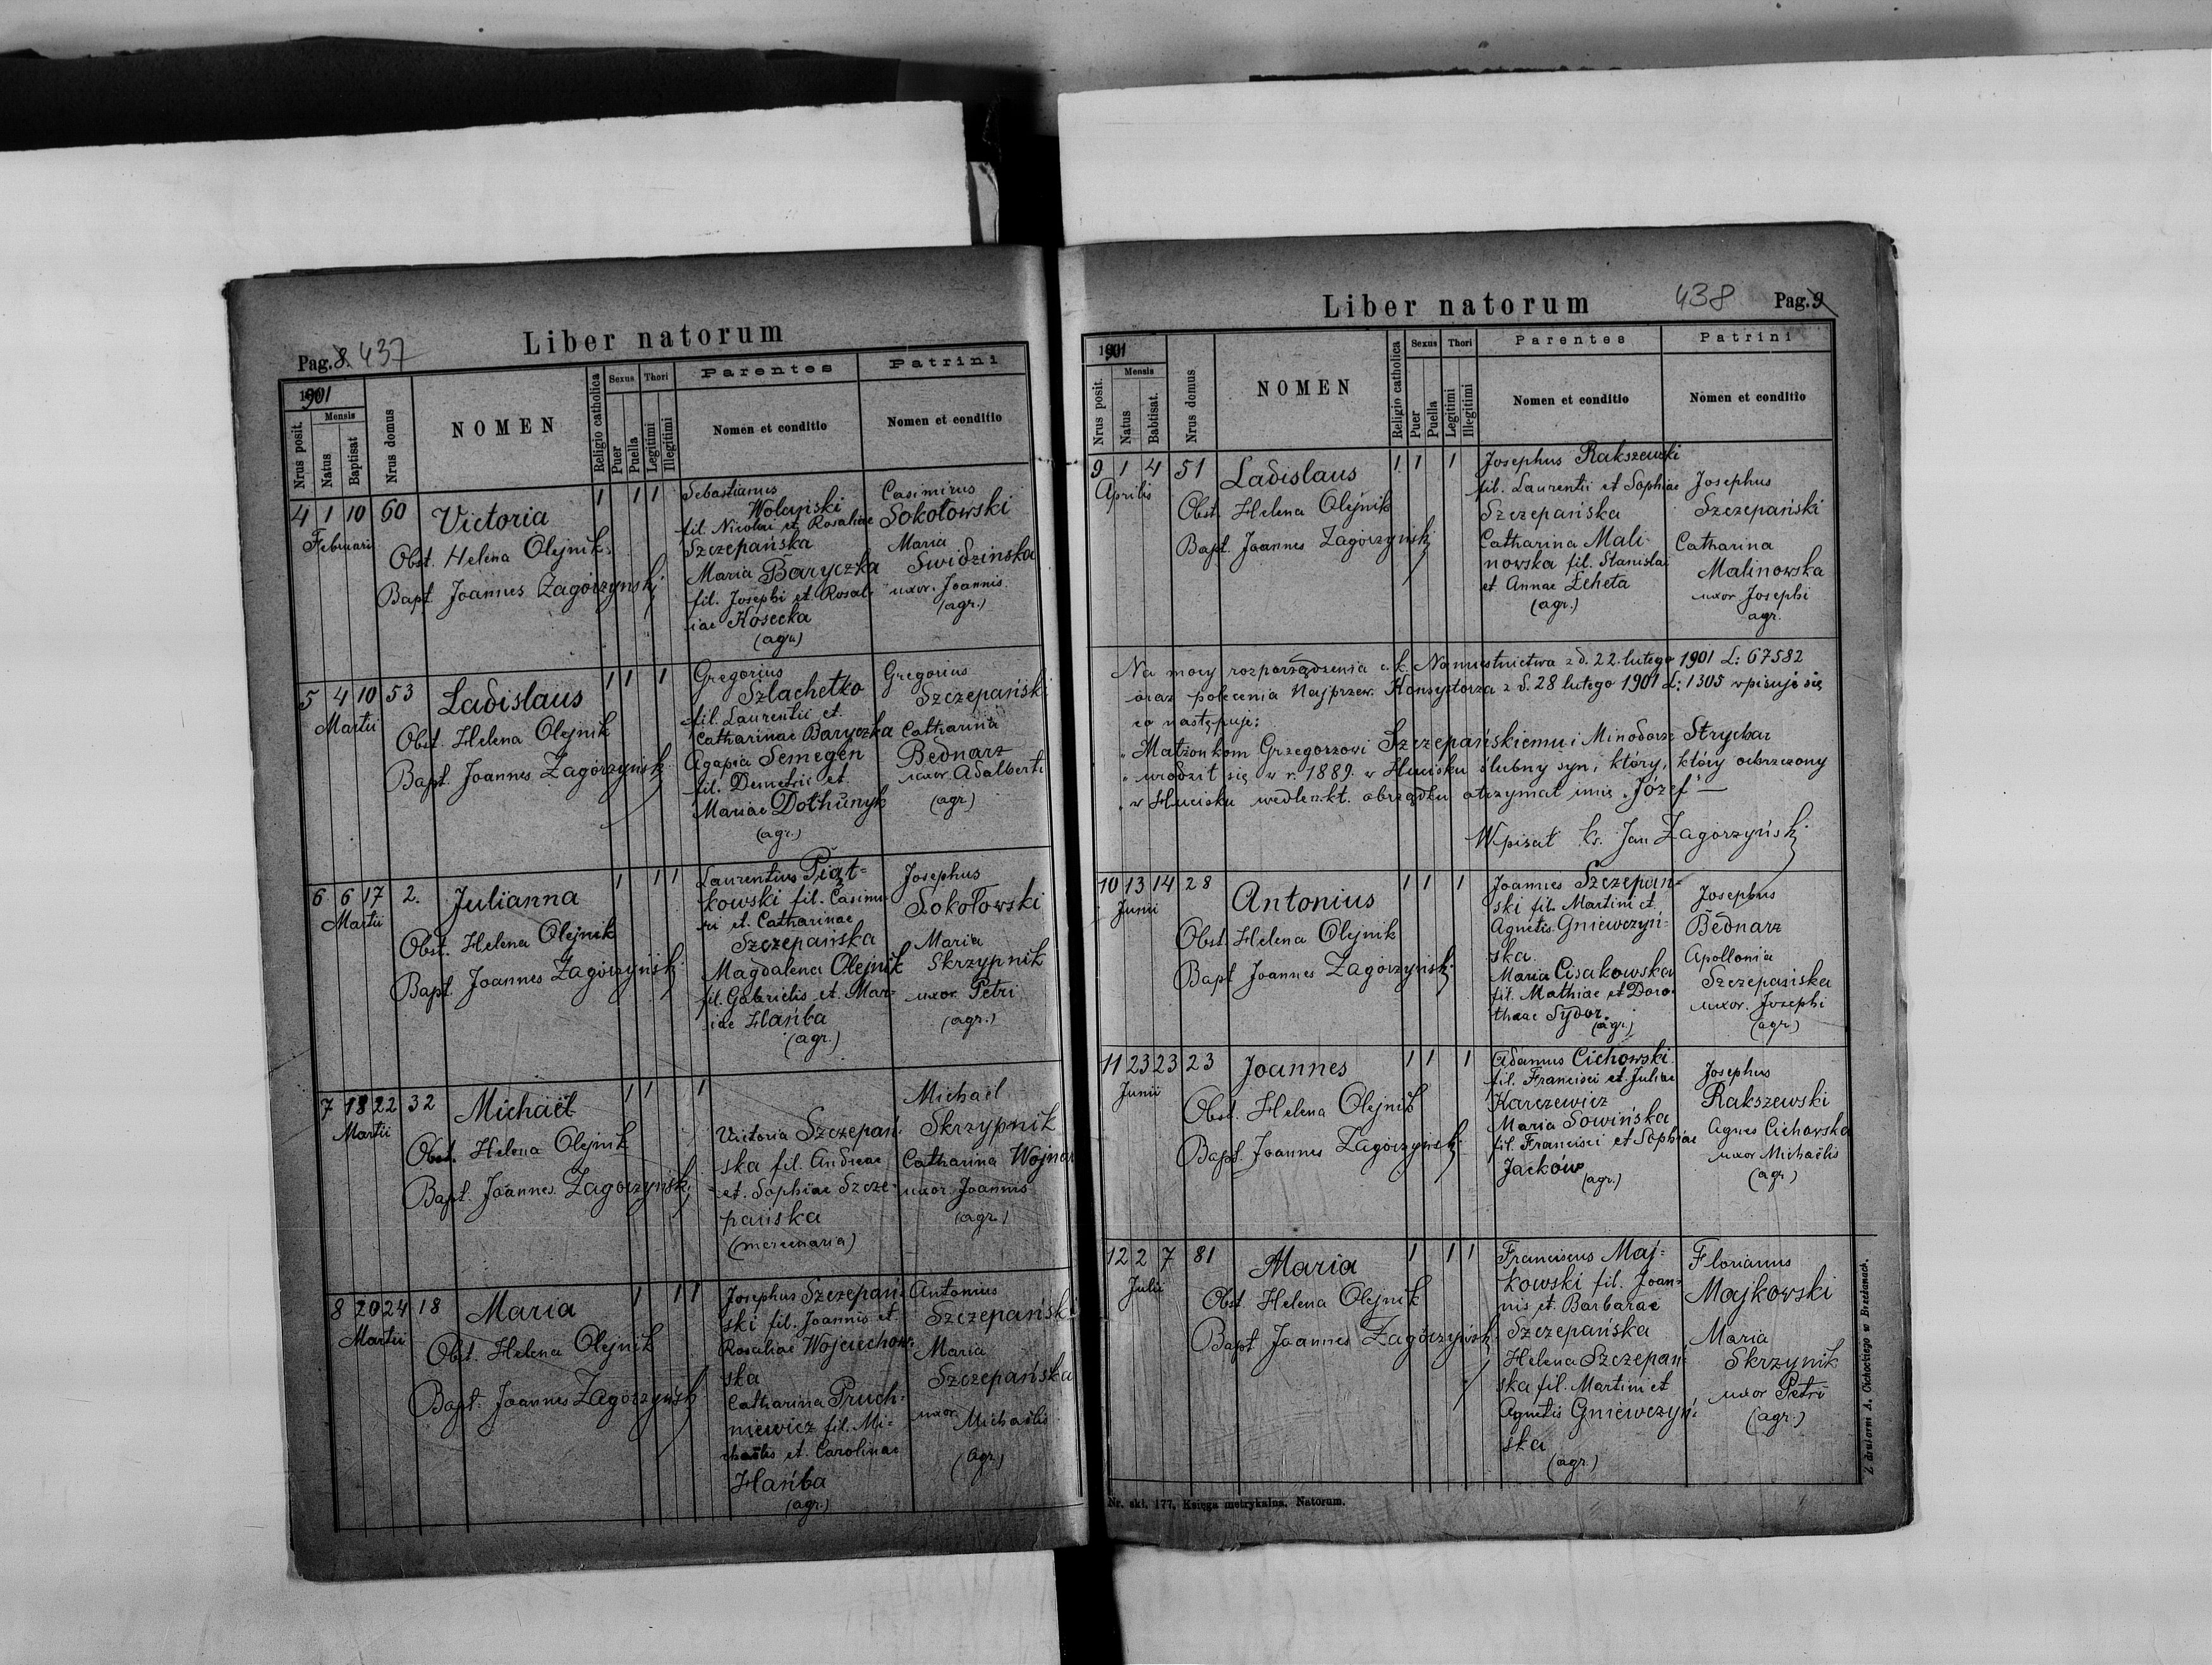 Pag. 8. 437
Liber natorum
1901
Mensis
Nrus posit.
Natus
Baptisat
Nrus domus
NOMEN
Religio catholica
Sexus
Puer
Puella
Thori
Legitimi
Illegitimi
Parentes
Nomen et conditio
Patrini
Nomen et conditio
4 1 10 60 Victoria 1 1 1
Februarii
Obst. Helena Olejnik
Bapt. Joannes Zagórzyński
Sebastianus
Wolański
fil. Nicolai et Rosaliae
Szczepańska
Maria Baryczka
fil. Josephi et Rosal-
iae Kosecka
(agr.)
Casimirus
Sokołowski
Maria
Swidzińska
uxor. Joannis
(agr.)
5 4 10 53 Ladislaus 1 1 1
Martii
Obst. Helena Olejnik
Bapt. Joannes Zagórzyński
Gregorius
Szlachetko
fil. Laurentii et
Catharinae Baryczka
Agapia Semegen
fil. Demetrii et
Mariae Dothunyk
(agr.)
Gregorius
Szczepański
Catharina
Bednarz
uxor. Adalberti
(agr)
6 6 17 2. Julianna 1 1 1
Martii
Obst. Helena Olejnik
Bapt. Joannes Zagórzyński
Laurentius Piąt=
kowski fil. Casimi-
ri et Catharinae
Szczepańska
Magdalena Olejnik
fil. Gabrielis et Mar=
iae Hańba
(agr.)
Josephus
Sokołowski
Maria
Skrzypnik
uxor Petri
(agr.)
7 18 22 32 Michaël 1 1 1
Martii
Obst. Helena Olejnik
Bapt. Joannes Zagórzyński
Victoria Szczepań-
ska fil. Andreae
et Sophiae Szcze-
pańska
(mercenaria)
Michael
Skrzypnik
Catharina Wojnar
uxor. Joannis
(agr.)
8 20 24 18 Maria 1 1 1
Martii
Obst. Helena Olejnik
Bapt. Joannes Zagórzyński
Josephus Szczepań-
ski fil. Joannis et
Rosaliae Wojciechow-
ska
Catharina Pruch-
niewicz fil. Mi=
chaëlis et Carolinae
Hańba
(agr.)
Antonius
Szczepański
Maria
Szczepańska
uxor Michaëlis
(agr)
Liber natorum
438 Pag. 9
1901
Mensis
Nrus posit.
Natus
Babtisat.
Nrus domus
NOMEN
Religio catholica
Sexus
Puer
Puella
Thori
Legitimi
Illegitimi
Parentes
Nomen et conditio
Patrini
Nomen et conditio
9 1 4 51 Ladislaus 1 1 1
Aprilis
Obst. Helena Olejnik
Bapt. Joannes Zagórzyński
Josephus Rakszewski
fil. Laurentii et Sophiae
Szczepańska
Catharina Mali-
nowska fil. Stanislai
et Annae Leheta
(agr.)
Josephus
Szczepański
Catharina
Malinowska
uxor Josephi
agr.
Na mocy rozporządzenia c. k. Namiestnictwa z d. 22. lutego 1901 L: 67582
oraz polecenia Najprzew. Konsystorza z d. 28 lutego 1901 L: 1305 wpisuje się
co następuje:
„Małżonkom Grzegorzowi Szczepańskiemu i Minodorze Strychar
„urodził się w r. 1889. w Hucisku ślubny syn, który, który ochrzczony
„w Hucisku wedle r. kt. obrządku otrzymał imię „Józef"—
Wpisał ks. Jan Zagórzyński
10 13 14 28 Antonius 1 1 1
Junii
Obst. Helena Olejnik
Bapt Joannes Zagórzyński
Joannes Szczepań=
ski fil. Martini et
Agnetis Gniewczyń=
ska.
Maria Cisakowska
fil. Mathiae et Doro-
theae Sydor.
(agr.)
Josephus
Bednarz
Apollonia
Szczepańska
uxor. Josephi
(agr)
11 23 23 23 Joannes 1 1 1
Junii
Obst. Helena Olejnik
Bapt. Joannes Zagórzyński
Adamus Cichowski
fil. Francisci et Juliae
Karczewicz
Maria Sowińska
fil. Francisci et Sophiae
Jacków
(agr.)
Josephus
Rakszewski
Agnes Cichowska
uxor Michaëlis
(agr)
12 2 7 81 Maria 1 1 1
Julii
Obst. Helena Olejnik
Bapt Joannes Zagórzyński
Franciscus Maj=
kowski fil. Joan=
nis et Barbarae
Szczepańska
Helena Szczepań-
ska fil. Martini et
Agnetis Gniewczyń-
ska
(agr.)
Florianus
Majkowski
Maria
Skrzynik
uxor Petri
(agr.)
Nr. skł. 177. Księga metrykalna. Natorum.
Z drukarni A. Cichockiego w Brzeżanach.